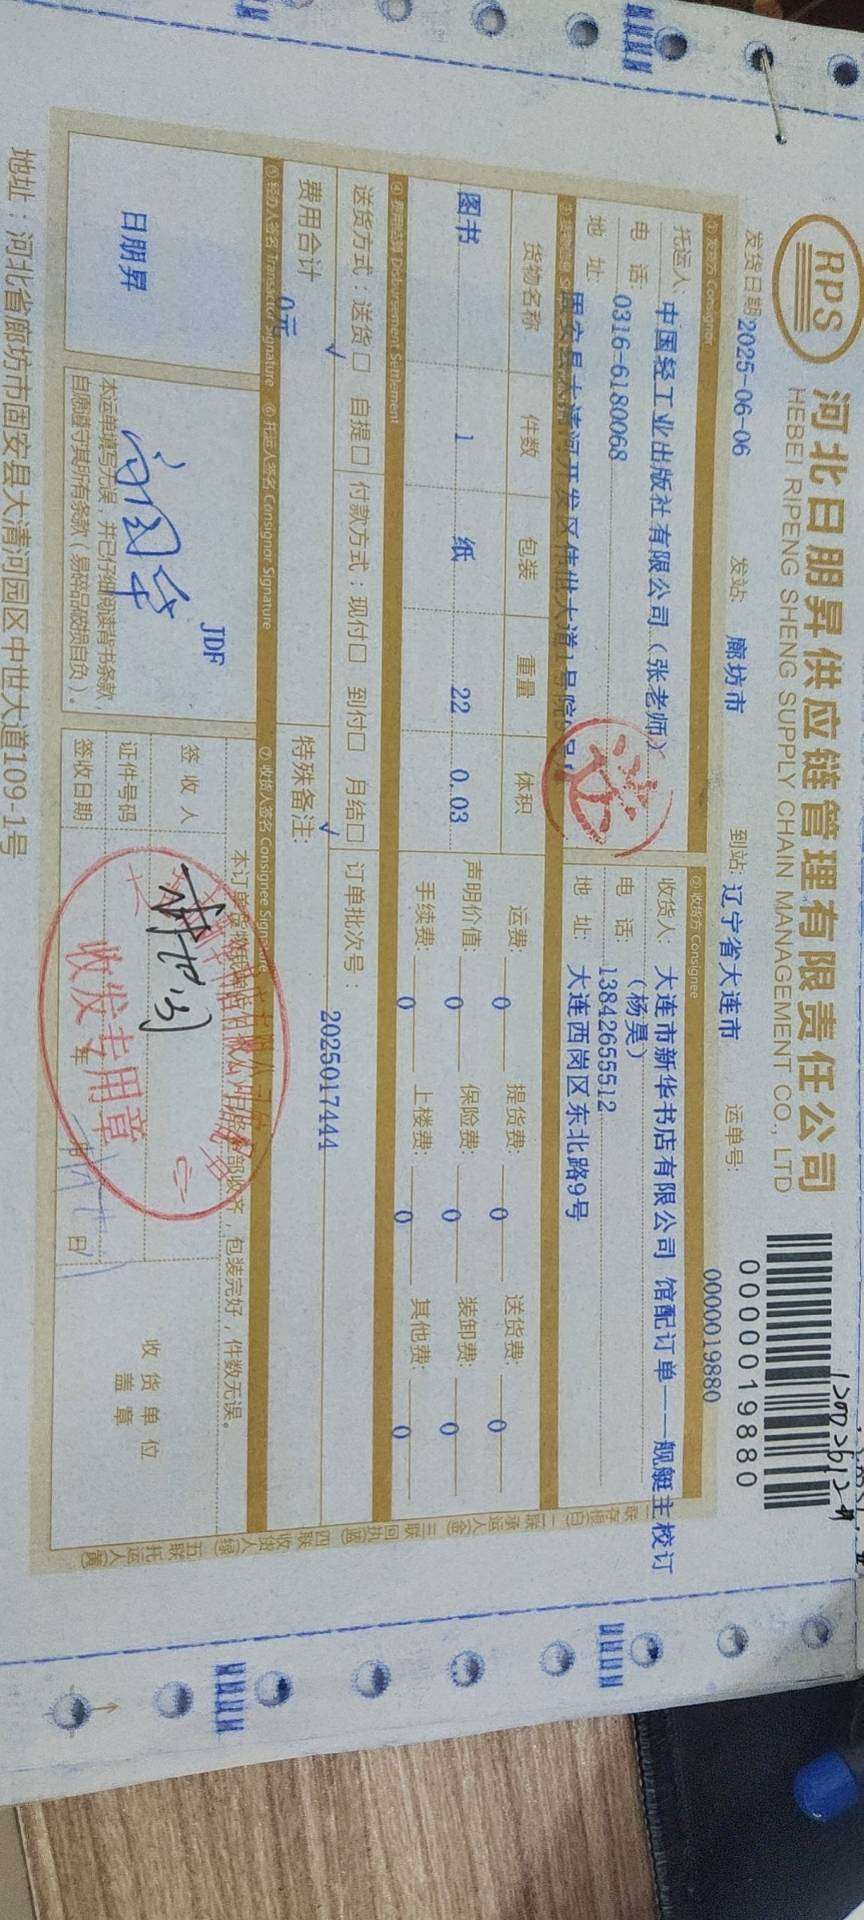 RPS
河北日朋昇供应链管理有限责任公司
HEBEI RIPENG SHENG SUPPLY CHAIN MANAGEMENT CO., LTD
0000019880
发货日期 2025-06-06 发站: 廊坊市 到站: 辽宁省大连市 运单号: 0000019880
① 发货方 Consignor
② 收货方 Consignee
托运人: 中国轻工业出版社有限公司(张老师)
收货人: 大连市新华书店有限公司 馆配订单——舰艇主校订
(杨昊)
电 话: 0316-6180068
电 话: 13842655512
地 址: 固安县大清河开发区伟世大道1号院
地 址: 大连西岗区东北路9号
送
货物名称 件数 包装 重量 体积
图书 1 纸 22 0.03
运费: 0 提货费: 0 送货费: 0
声明价值: 0 保险费: 0 装卸费: 0
手续费: 0 上楼费: 0 其他费: 0
④ 费用结算 Disbursement Settlement
送货方式: 送货□ 自提□ 付款方式: 现付□ 到付□ 月结□ 订单批次号: 2025017444
√ √
费用合计 0元
特殊备注:
⑤ 经办人签名 Transactor Signature ⑥ 托运人签名 Consignor Signature ⑦ 收货人签名 Consignee Signature
日朋昇
JDF
本运单填写无误,并已仔细阅读背书条款
自愿遵守其所有条款(易碎品破损自负)。
包装完好,件数无误。
签 收 人
证件号码
签收日期 年 月 日
收发专用章
收 货 单 位
盖 章
一联存根(白) 二联承运人(金) 三联回执(蓝) 四联收货人(绿) 五联托运人(黄)
地址:河北省廊坊市固安县大清河园区中世大道109-1号